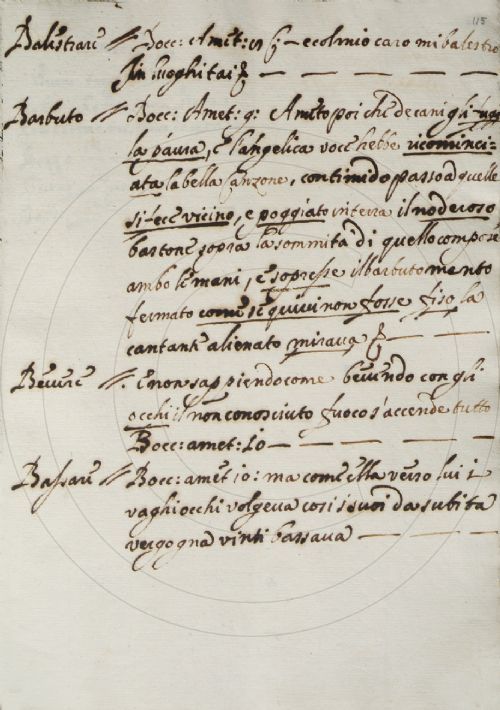 115
Balestrare // Bocc: Amet: e col mio caro mi balestro
in luoghi tai
Barbuto // Bocc: Amet: 9: Ameto poi che de cani gli fuggi
la paura, e l'angelica voce hebbe ricominci:
ata la bella canzone, con timido passo a quelle
si fece vicino, e poggiato in terra il noderoso
bastone sopra la sommità di quello compose
ambo le mani, e sopresse il barbuto mento
fermato come se quivi non fosse fiso la
cantante alienato mirava
Bevere // e non sappiendo come bevendo con gli
occhi il non conosciuto fuoco s'accende tutto
Bocc: amet: 10
Bassare // Bocc: amet 10: ma come ella verso lui i
vaghi occhi volgeva cosi i suoi da subita
vergogna vinti bassava